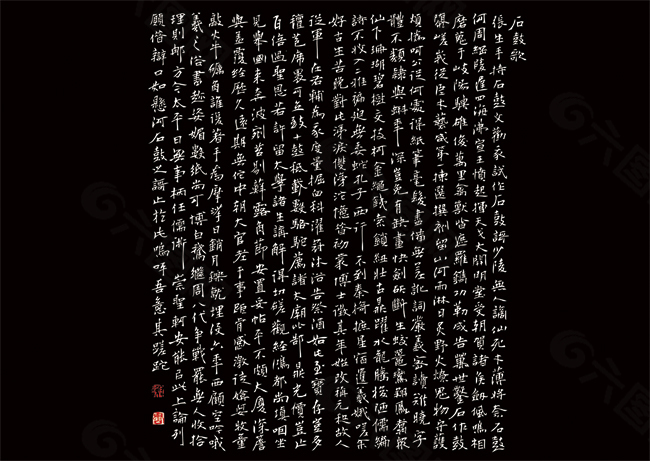 石鼓歌
張生手持石鼓文勸我試作石鼓歌少陵無人謫仙死才薄將奈石鼓
何周綱陵遲四海沸宣王憤起揮天戈大開明堂受朝賀諸侯劍佩鳴相
磨蒐于岐陽騁雄俊萬里禽獸皆遮羅鐫功勒成告萬世鑿石作鼓
隳嵯峨從臣才藝咸第一揀選撰刻留山阿雨淋日炙野火燎鬼物守護
煩撝呵公從何處得紙本毫髮盡備無差訛詞嚴義密讀難曉字
體不類隸與蝌年深豈免有缺畫快劍斫斷生蛟鼉鸞翔鳳翥衆
仙下珊瑚碧樹交枝柯金繩鐵索鎖鈕壯古鼎躍水龍騰梭陋儒編
詩不收入二雅褊迫無委蛇孔子西行不到秦掎摭星宿遺羲娥嗟余
好古生苦晚對此涕淚雙滂沱憶昔初蒙博士徵其年始改稱元和故人
從軍在右輔為我度量掘臼科濯冠沐浴告祭酒如此至寶存豈多
氈苞席裹可立致十鼓祇載數駱駝薦諸太廟比郜鼎光價豈止
百倍過聖恩若許留太學諸生講解得切磋觀經鴻都尚填咽坐
見舉國來奔波剜苔剔蘚露節角安置妥帖平不頗大廈深簷
與蓋覆經歷久遠期無佗中朝大官老于事詎肯感激徒媕婀牧童
敲火牛礪角誰復著手為摩挲日銷月鑠就埋沒六年西顧空吟哦
羲之俗書趁姿媚數紙尚可博白鵝繼周八代爭戰罷無人收拾
理則那方今太平日無事柄任儒術崇丘軻安能以此上論列
願借辯口如懸河石鼓之歌止於此嗚呼吾意其蹉跎